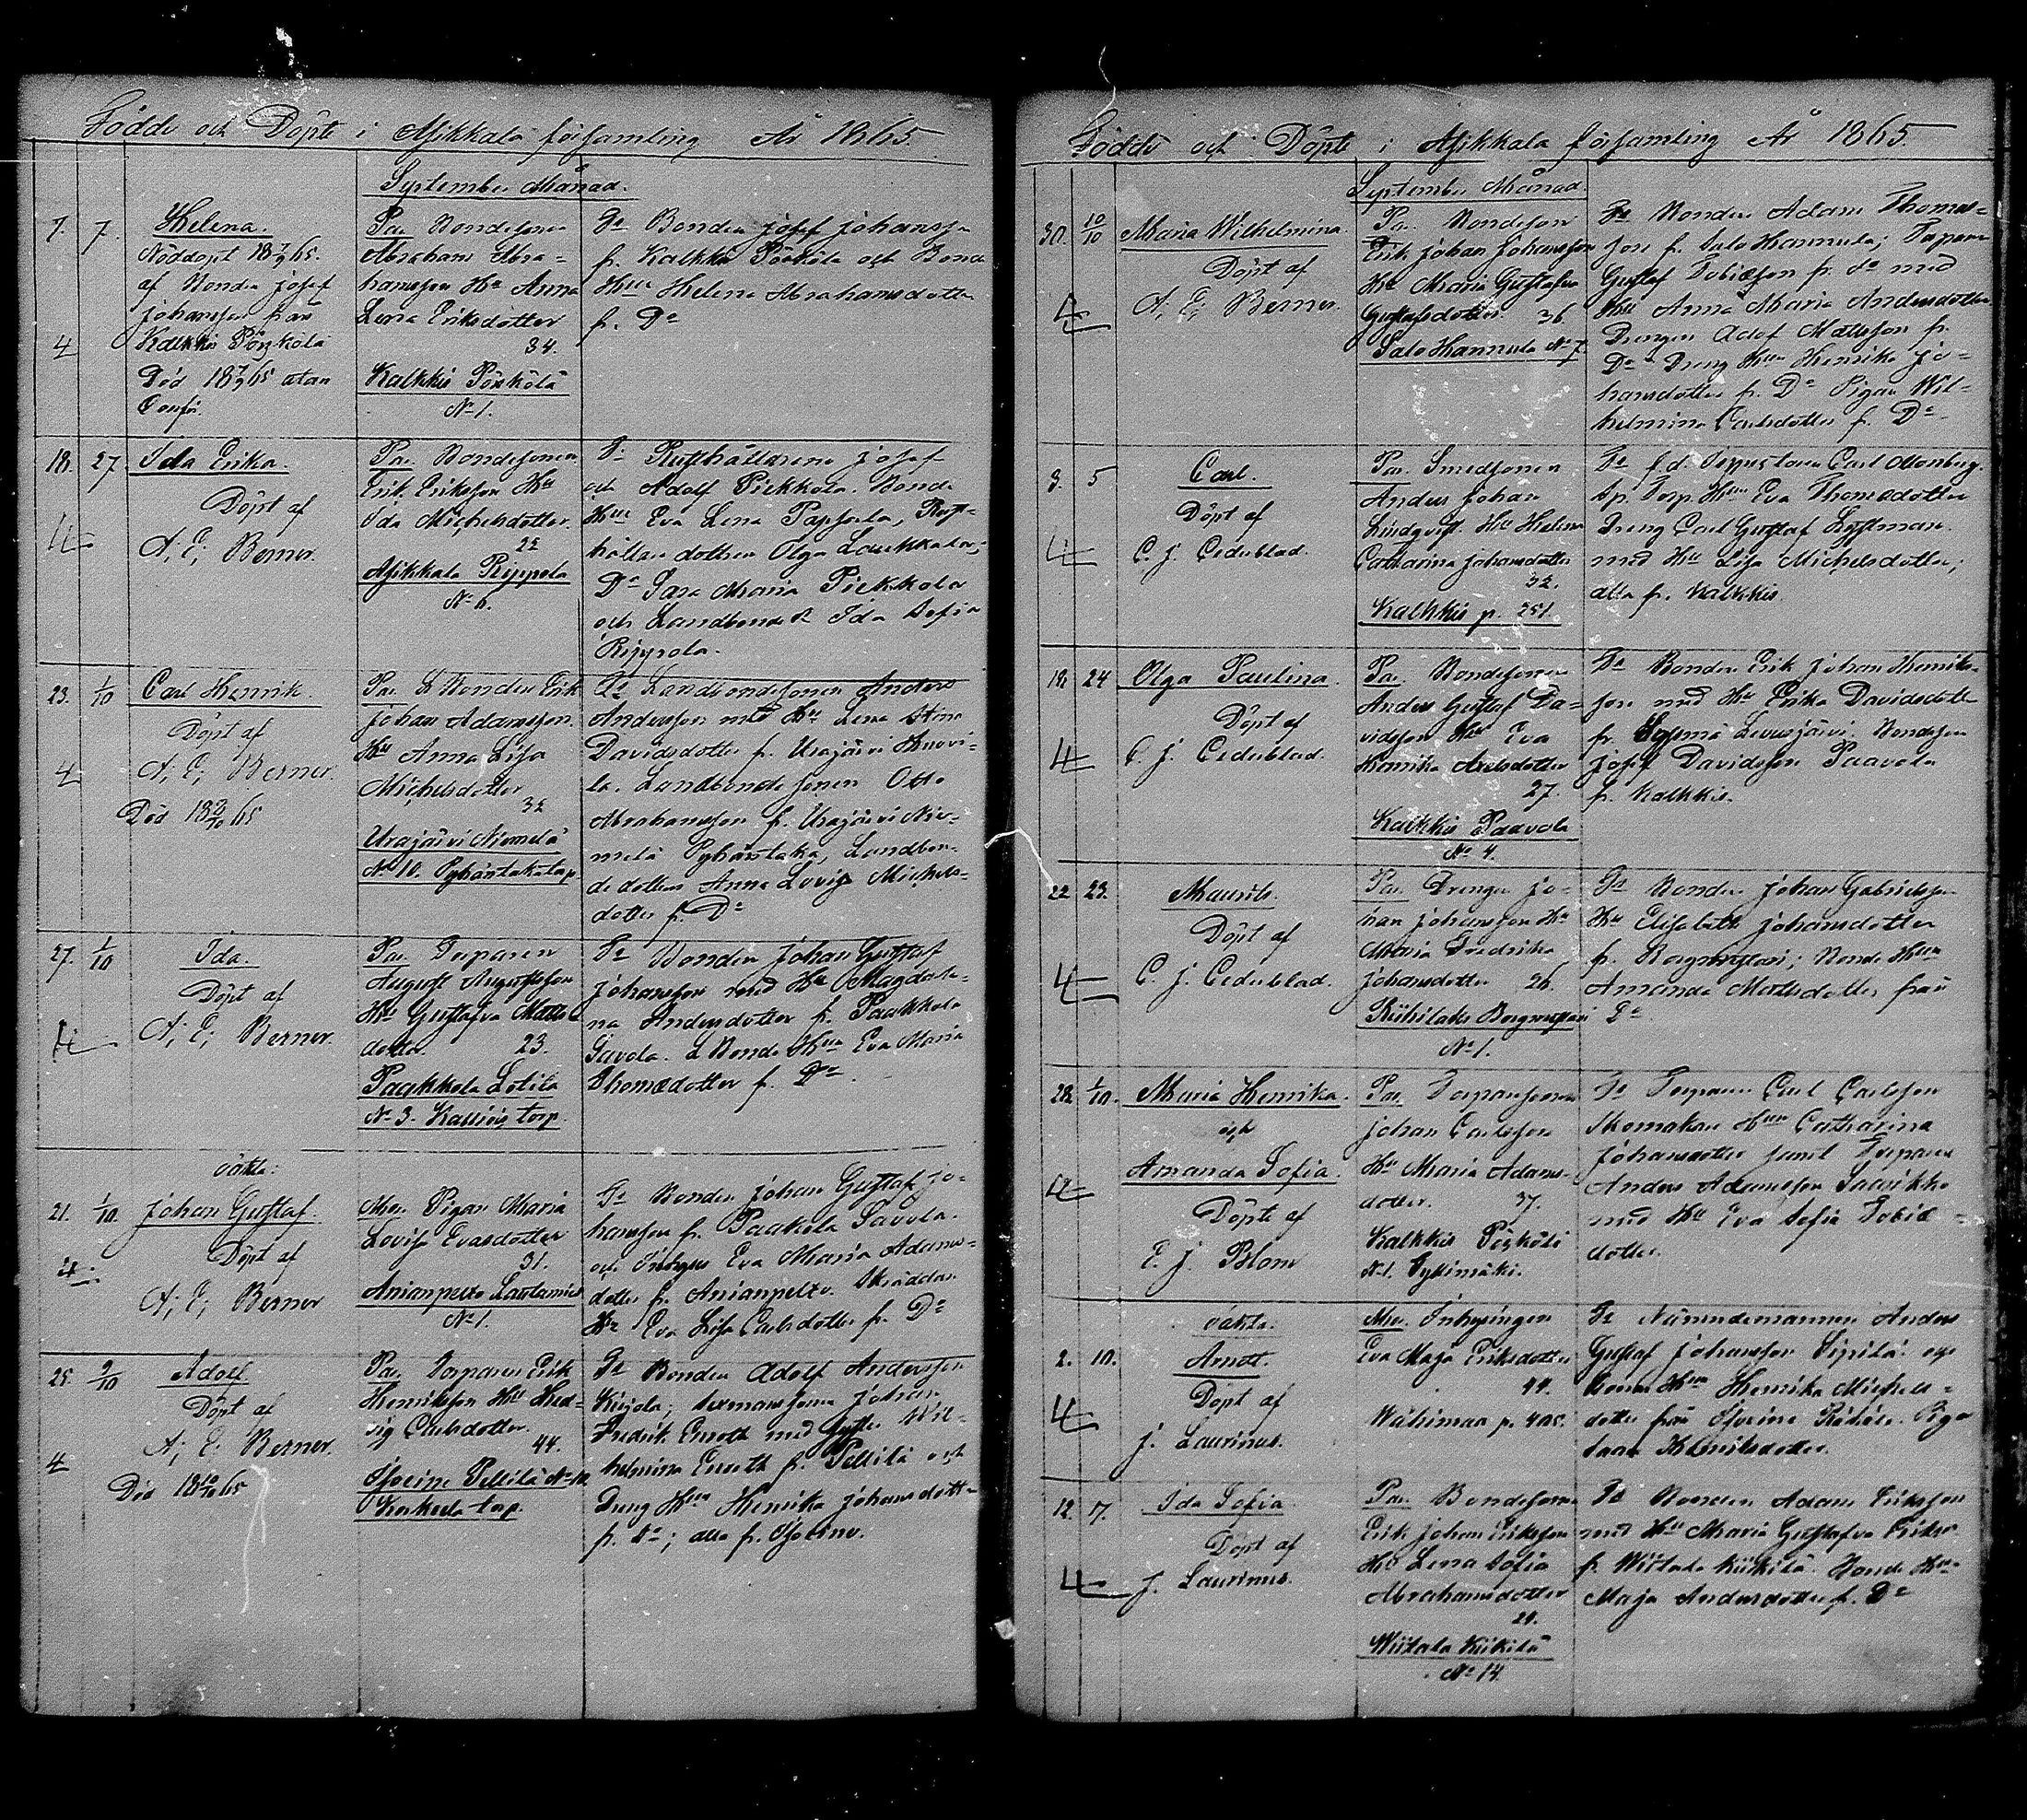 Födde och Döpte i Asikkala församling År 1865.
September Månad.
7. 7. Helena.
Nöddöpt 18 7/9 65.
af Bonden Josef
Johansson från
4 Kalkkis Pörkölä
Död 18 7/9 65 utan
Par. Bondesonen
Abraham Abra-
hamsson Hu Anna
Lena Eriksdotter
34.
Kalkkis Pörkölä
No 1.
Fr Bonden Josef Johansson
fr. Kalkkis Pörkölä och Bonde
Hun Helena Abrahamsdotter
fr. Do
18. 27. Ida Erika.
Döpt af
4 A. E. Berner.
Par. Bondesonen
Erik Eriksson Hu
Ida Michelsdotter.
22
Asikkala Rippola
No 6.
Fr Rusthållarene Josef
och Adolf Pickkola. Bonde
Hun Eva Lena Rust-
hållar dottren Olga Laukkala,
Do Sara Maria Pickkola
och Landbonde d. Ida Sofia
Rippola.
23. 1/10 Carl Henrik.
Döpt af
4 A. E. Berner.
Död 18 65
Par. L Bonden Erik
Johan Adamsson.
Hu Anna Lisa
Michelsdotter
32
Urajärvi Niemelä
No 10. Pyhäntaka torp
Fr Landbondesonen Anders
Andersson med Hu Lena Stina
Davidsdotter fr. Urajärvi Huovi-
la. Landbonde sonen Otto
Abrahamsson fr. Urajärvi Nie-
melä Pyhäntaka, Landbon-
de dottren Anna Lovisa Michels-
dotter fr. Do
27. 1/10 Ida.
Döpt af
4 A. E. Berner.
Par. Torparen
August Augustsson
Hu Gustafva Matts-
dotter. 23.
Paakkola Lotila
No 3. torp.
Fr Bonden Johan Gustaf
Johansson med Hu Magdale-
na Andersdotter fr. Paakkola
Savola. L Bonde Hun Eva Maria
Thomædotter fr. Do
oäkta:
21. 1/10. Johan Gustaf.
Döpt af
4 A. E. Berner
Mor. Pigan Maria
Lovisa Evasdotter
31.
Anianpelto
No 1.
Fr Bonden Johan Gustaf Jo-
hansson fr. Paakkola Savola.
och Inhyses Eva Maria Adams-
dotter fr. Anianpelto. Skräddar
Hu Eva Lisa Carlsdotter fr. Do
25. 9/10 Adolf.
Döpt af
A. E. Berner.
4
Död 18 65
Par. Torparen Erik
Henriksson Hu Hed-
vig Carlsdotter.
44.
Pellilä No 10
torp.
Fr Bonden Adolf Andersson
Johan
Fredrik med Wil-
helmina fr. Pellilä och
Dreng Hun Henrika Johansdotter
fr. Do; alla fr.
Födde och Döpte i Asikkala församling År 1865.
September Månad.
30. 10/10 Maria Wilhelmina.
Döpt af
4 A. E. Berner.
Par. Bondeson
Erik Johan Johansson
Hu Maria Gustafva
Gustafsdotter. 36.
Salo Hannula No 7.
Fr Bonden Adam Thomas-
son fr. Salo Hannula; Torparen
Gustaf Tobiasson fr. Do med
Hu Anna Maria Andersdotter
Drengen Adolf Mattsson fr.
Do Dreng Hun Henrika Jo-
hansdotter fr. Do Pigan Wil-
helmina Carlsdotter f. Do
3. 5 Carl.
Döpt af
4 C. J. Cederblad.
Par. Smedsonen
Anders Johan
Lindqvist. Hu Helena
Catharina Johansdotter
32.
Kalkkis p. 251.
Fr f.d. Carl
Sp. Torp. Hun Eva Thomædotter
Dreng Carl Gustaf Lystman.
med Hu Lisa Michelsdotter;
alla fr. Kalkkis.
18. 24 Olga Paulina.
Döpt af
4 C. J. Cederblad.
Par. Bondesonen
Anders Gustaf Da-
vidsson Hu Eva
Henrika Axelsdotter
27.
Kalkkis Paavola
No 4.
Fr Bonden Erik Johan Henriks-
son med Hu Erika Davidsdotter
fr. Sysmä Liikola. Bondeson
Josef Davidsson Paavola
fr. Kalkkis.
22 23. Maurits.
Döpt af
4 C. J. Cederblad.
Par. Drengen Jo-
han Johansson Hu
Maria Fredrika
Johansdotter 26.
No 1.
Fr Bonden Johan Gabrielsson
Hu Elisabeth Johansdotter
fr. Bonde Hun
Amanda Mattsdotter från
Do
28. 1/10. Maria Henrika.
och
4 Amanda Sofia.
Döpte af
E. J. Blom
Par. Torparesonen
Johan Carlsson
Hu Maria Adams-
dotter. 37.
Kalkkis Pörkölä
No 1.
Fr Torparen Carl Carlsson
Skomakare Hun Catharina
Johansdotter samt Torparen
Anders Adamsson
med Hu Eva Sofia Tobiæ-
dotter.
oäkta.
2. 10. Arndt.
Döpt af
4 J. Laurinus.
Mor. Inhysingen
Eva Maja Eriksdotter
44.
Wähimaa p. 405.
Fr Nämndemannen Anders
Gustaf Johansson Sipilä och
Bonde Hun Henrika Michels-
dotter från Piga
12. 7. Ida Sofia.
Döpt af
4 J. Laurinus.
Par. Bondesonen
Erik Johan Eriksson
Hu Lena Sofia
Abrahamsdotter
24.
No 14.
Fr Bonden Adam Eriksson
med Hu Maria Gustafva Eriksd
fr. Bonde Hu
Maja Andersdotter fr. Do